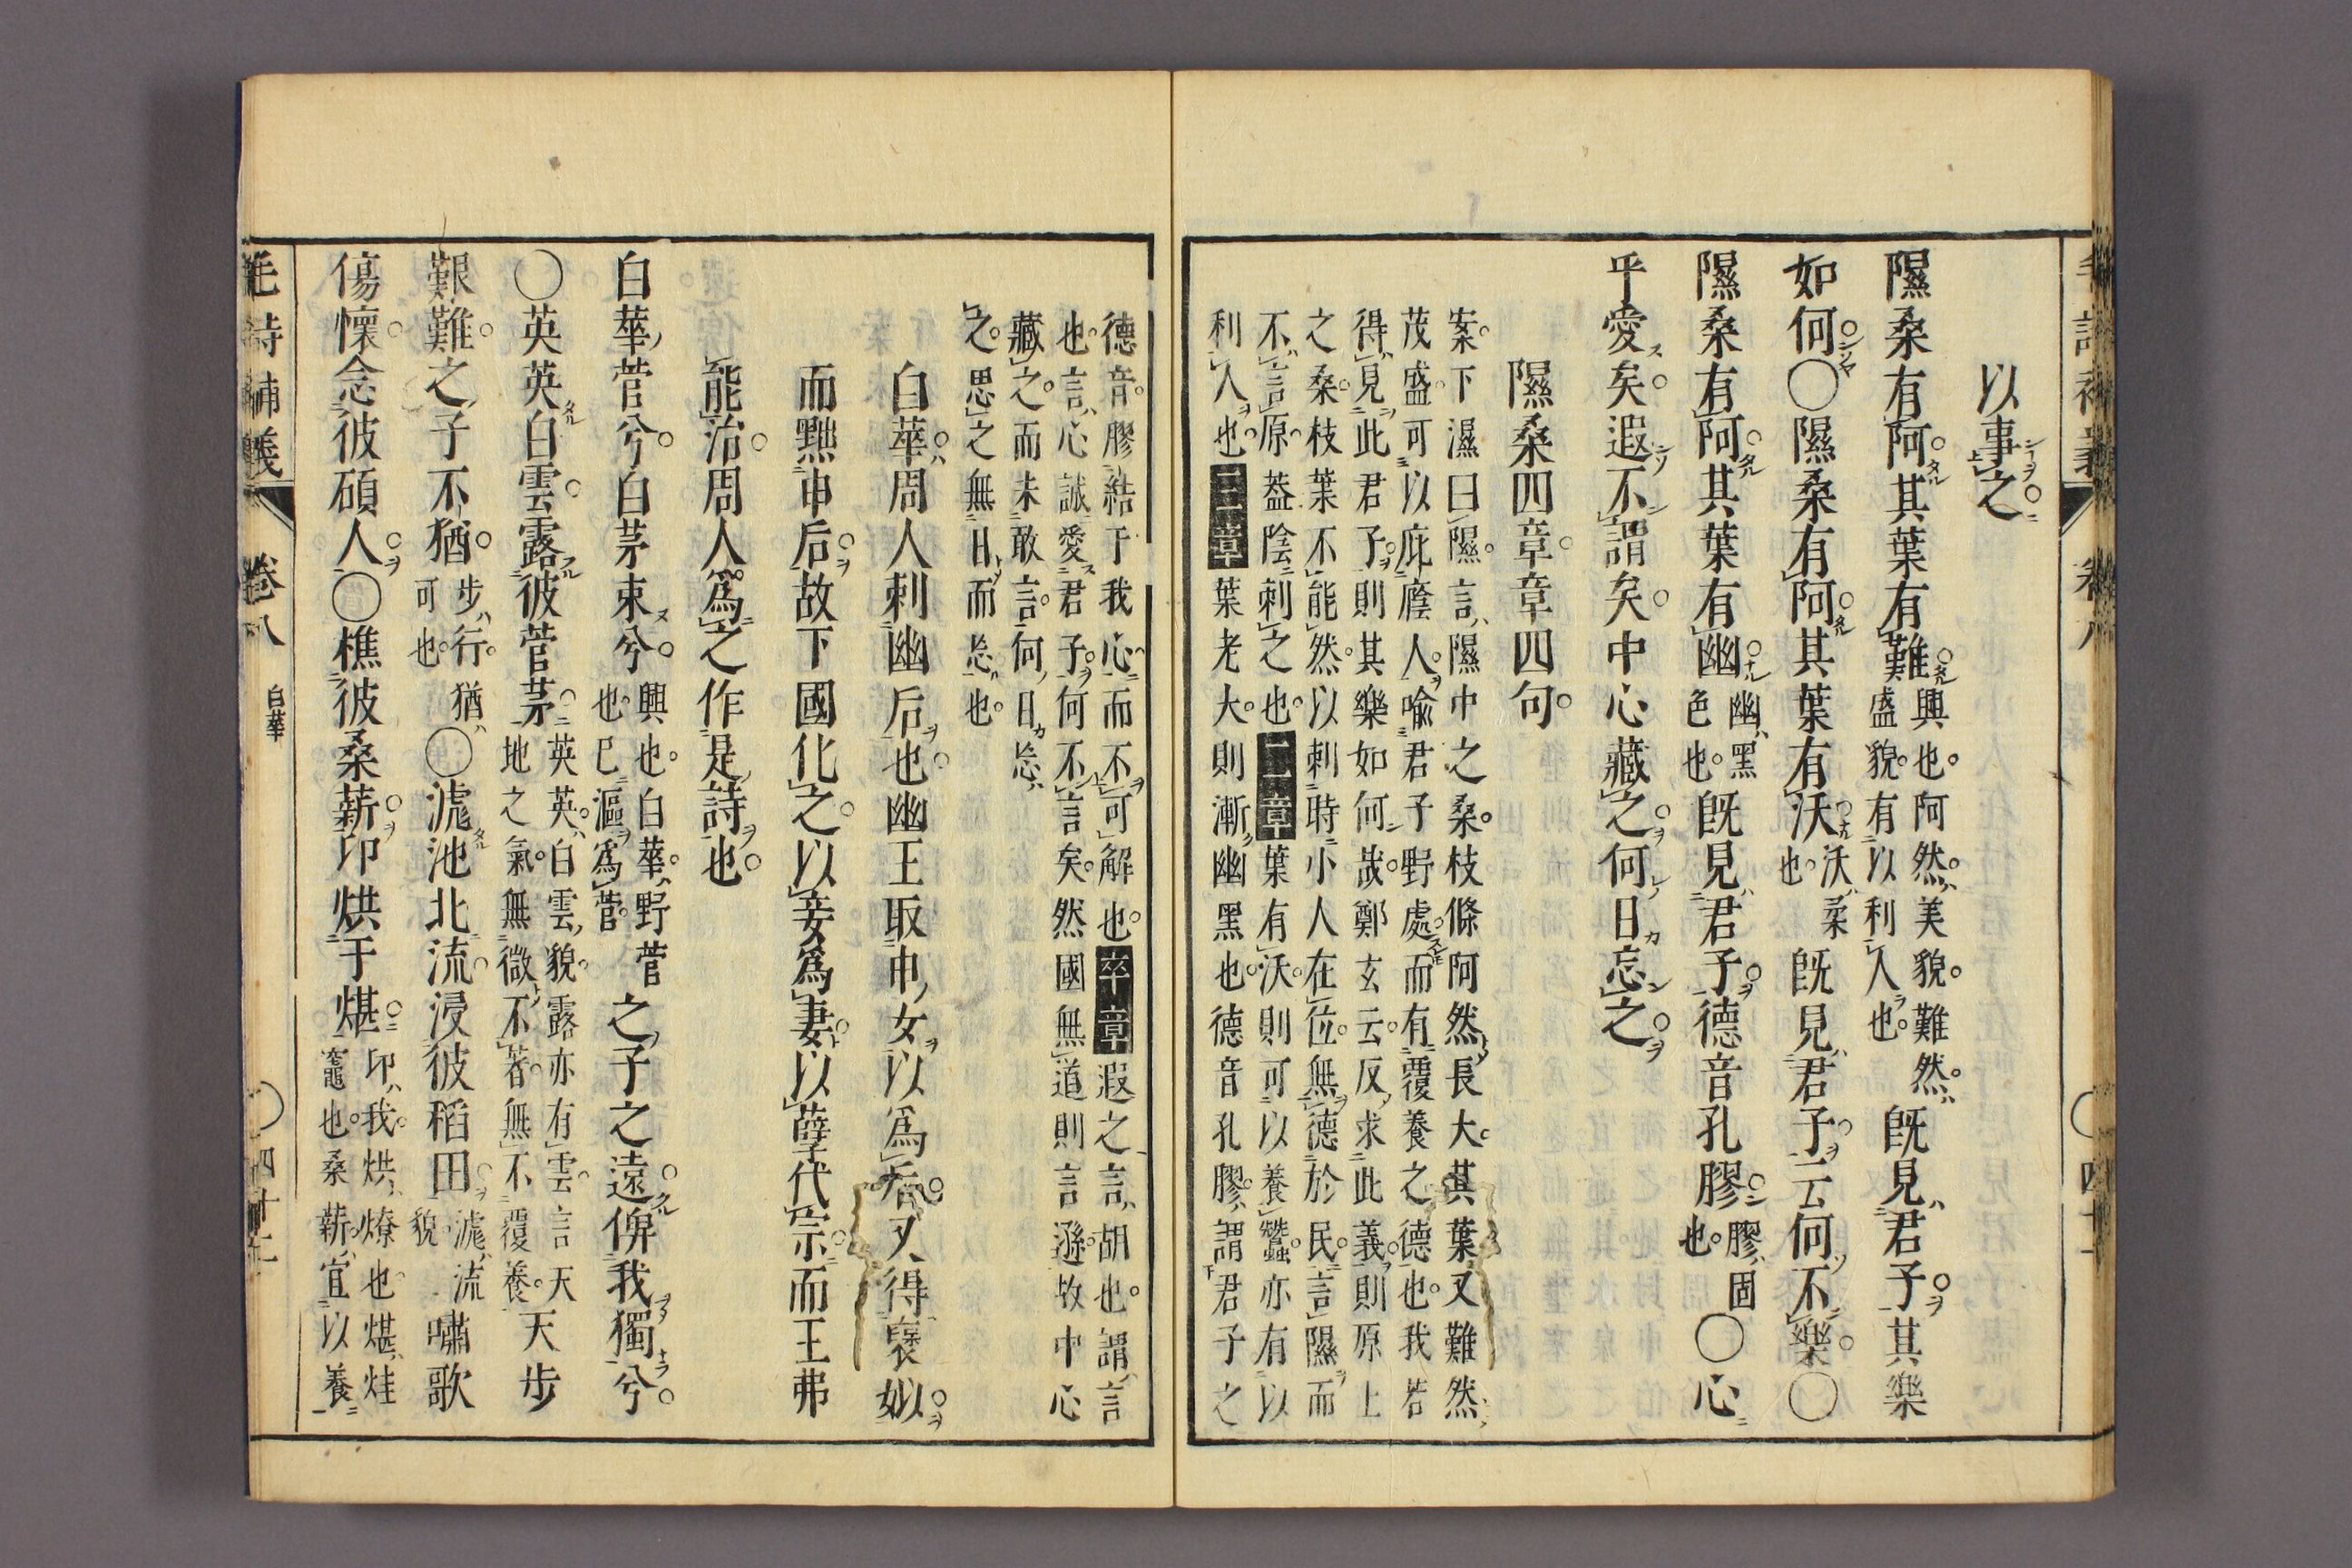 以事之。
隰桑有阿。其葉有難。興也。阿然、美貌。難然、盛貌。有以利人也。既見君子。其樂
如何。〇隰桑有阿。其葉有沃。沃、柔也。既見君子。云何不樂。〇
隰桑有阿。其葉有幽。幽、黑色也。既見君子。德音孔膠。膠、固也。〇心
乎愛矣。遐不謂矣。中心藏之。何日忘之。
隰桑四章。章四句。
案。下濕曰隰。言、隰中之桑。枝條阿然長大。其葉又難然、
茂盛。可以庇廕人。喻君子野處。而有覆養之德也。我若
得見此君子。則其樂如何哉。鄭玄云。反求此義。則原上
之桑。枝葉不能然。以刺時小人在位。無德於民。言隰而
不言原。葢陰刺之也。二章葉有沃。則可以養蠶。亦有以
利人也。三章葉老大。則漸幽黑也。德音孔膠。謂君子之
德音。膠結于我心。而不可解也。卒章遐之言、胡也。謂、言
也。言、心誠愛君子。何不言矣。然國無道則言遜。故中心
藏之。而未敢言。何日忘、
之。思之無日而忘也。
白華。周人刺幽后也。幽王取申女。以為后。又得襃姒。
而黜申后。故下國化之。以妾為妻。以孽代宗。而王弗
能治。周人為之作是詩也。
白華菅兮。白茅束兮。興也。白華、野菅也。已漚為菅。之子之遠。俾我獨兮。
〇英英白雲。露彼菅茅。英英、白雲貌。露亦有雲。言天地之氣。無微不著。無不覆養。天步
艱難。之子不猶。步、行。猶、可也。〇滮池北流。浸彼稻田。滮、流貌。嘯歌
傷懷。念彼碩人。〇樵彼桑薪。卬烘于煁。卬、我。烘、燎也。煁、烓竈也。桑薪、宜以養
毛詩補義
卷八
白華